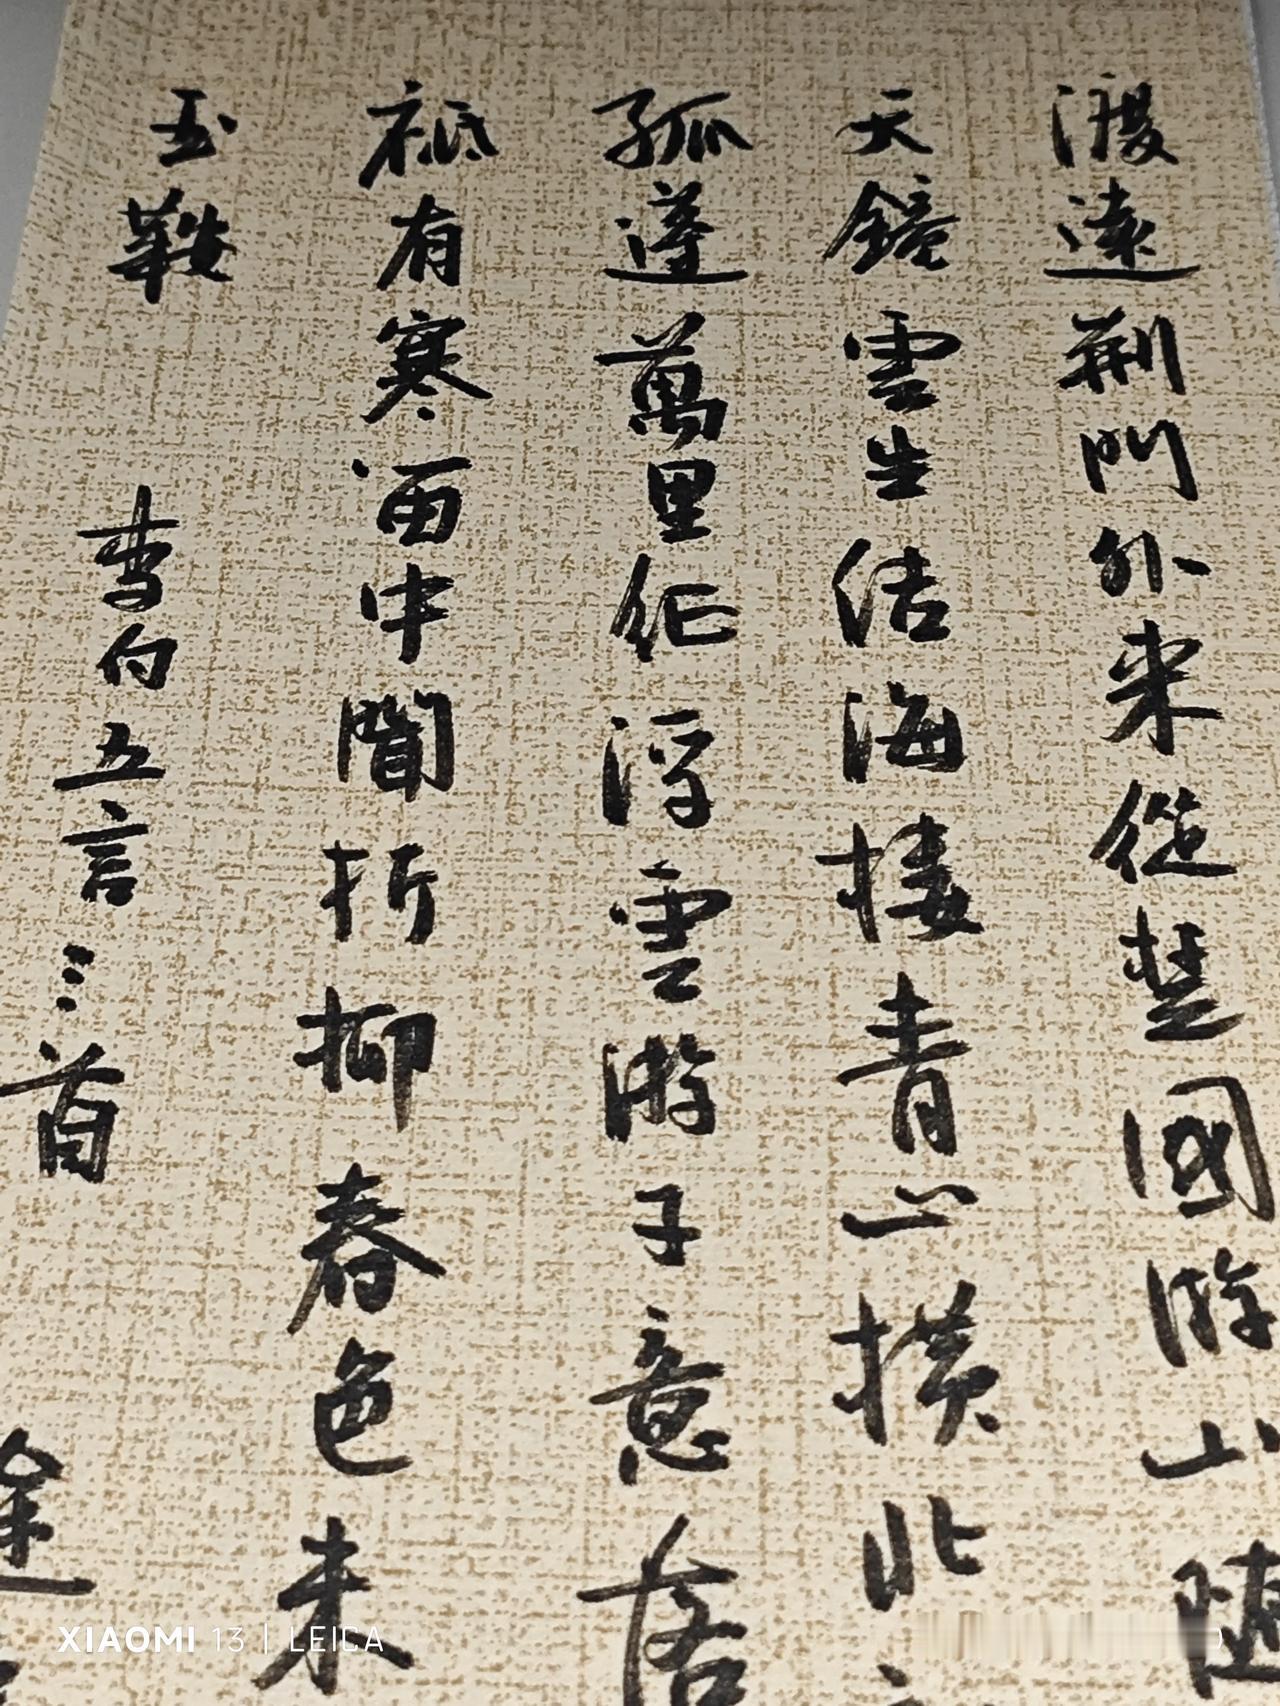 渡遠荆門外来從楚國游山随
天鏡雲生结海楼青山横北
孤蓬萬里征浮雲游子意落
祗有寒笛中聞折柳春色未
玉鞍
李白五言三首
XIAOMI 13 | LEICA